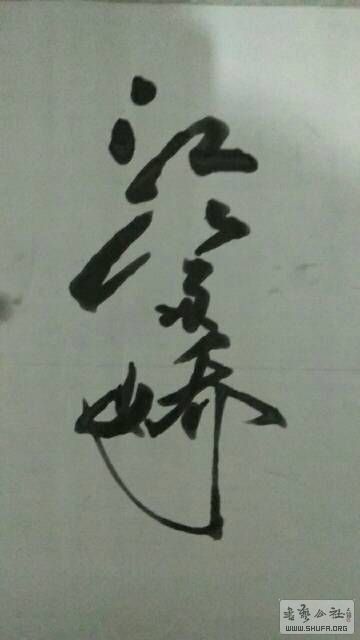 江山多娇
书艺公社
WWW.SHUFA.ORG